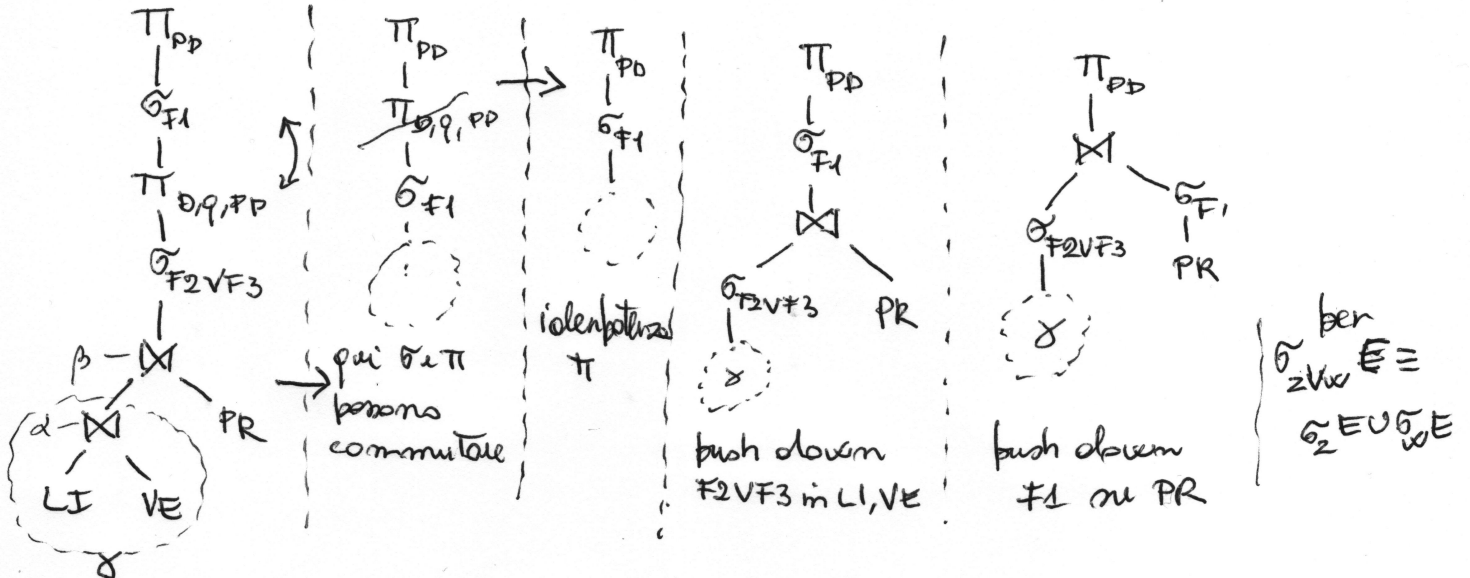 Π PD
σ F1
Π D,q,PD
σ F2VF3
β ⋈
α ⋈ PR
LI VE
γ
Π PD
Π D,q,PD
σ F1
qui σ e π
possono
commutare
Π PD
σ F1
idenpotenza
π
Π PD
σ F1
⋈
σ F2VF3 PR
γ
push down
F2VF3 in LI, VE
Π PD
⋈
σ F2VF3 σ F1
PR
γ
push down
F1 su PR
per
σ zVw E ≡
σz E U σw E